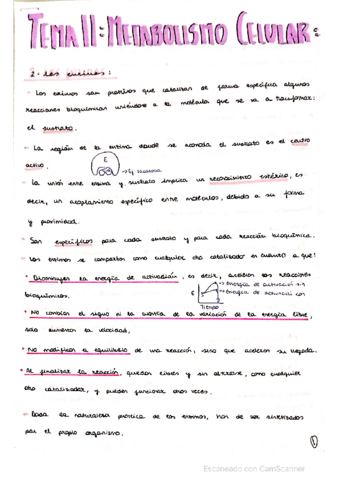 TEMA 11: METABOLISMO CELULAR:
2- Las enzimas:
- Las enzimas son proteínas que catalizan de forma específica algunas
reacciones bioquímicas uniéndose a la molécula que se va a transformar:
el sustrato.
- La región de la enzima donde se acomoda el sustrato es el centro
activo.
E
→ Ej. sacarosa
- La unión entre enzima y sustrato implica un reconocimiento estérico, es
decir, un acoplamiento específico entre moléculas, debido a su forma
y proximidad.
- Son específicas para cada sustrato y para cada reacción bioquímica.
- Las enzimas se comportan como cualquier otro catalizador en cuanto a que:
* Disminuyen la energía de activación, es decir, aceleran las reacciones
bioquímicas.
E
→ Energía de activación sin
→ Energía de activación con
Tiempo
* No cambian el signo ni la cuantía de la variación de la energía libre,
solo aumentan la velocidad.
* No modifican el equilibrio de una reacción, sino que aceleran su llegada.
* Al finalizar la reacción, quedan libres y sin alterarse, como cualquier
otro catalizador, y pueden funcionar otras veces.
- Dada la naturaleza proteica de las enzimas, han de ser sintetizadas
por el propio organismo.
1
Escaneado con CamScanner